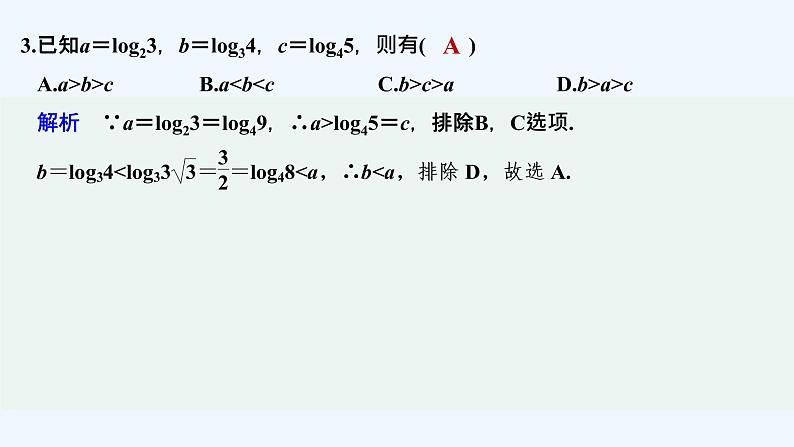 3.已知a＝log₂3，b＝log₃4，c＝log₄5，则有( A )
A.a>b>c B.a<b<c C.b>c>a D.b>a>c
解析 ∵a＝log₂3＝log₄9，∴a>log₄5＝c，排除B，C选项.
b＝log₃4<log₃3√3＝3/2＝log₄8<a，∴b<a，排除 D，故选 A.